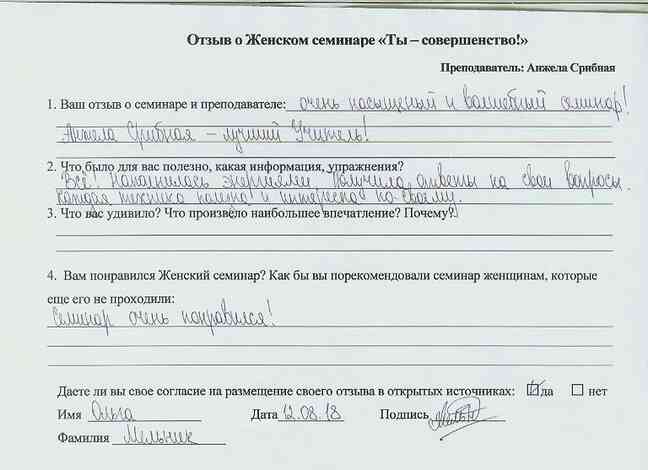 Отзыв о Женском семинаре «Ты – совершенство!»
Преподаватель: Анжела Срибная
1. Ваш отзыв о семинаре и преподавателе: очень насыщеный и волшебный семинар!
Анжела Срибная – лучший Учитель!
2. Что было для вас полезно, какая информация, упражнения?
Всё! Наполнилась энергиями. Получила ответы на свои вопросы.
Каждая техника полезна и интересна по-своему.
3. Что вас удивило? Что произвело наибольшее впечатление? Почему?
4. Вам понравился Женский семинар? Как бы вы порекомендовали семинар женщинам, которые
еще его не проходили:
Семинар очень понравился!
Даете ли вы свое согласие на размещение своего отзыва в открытых источниках: да нет
Имя Ольга Дата 12.08.18 Подпись
Фамилия Мельник